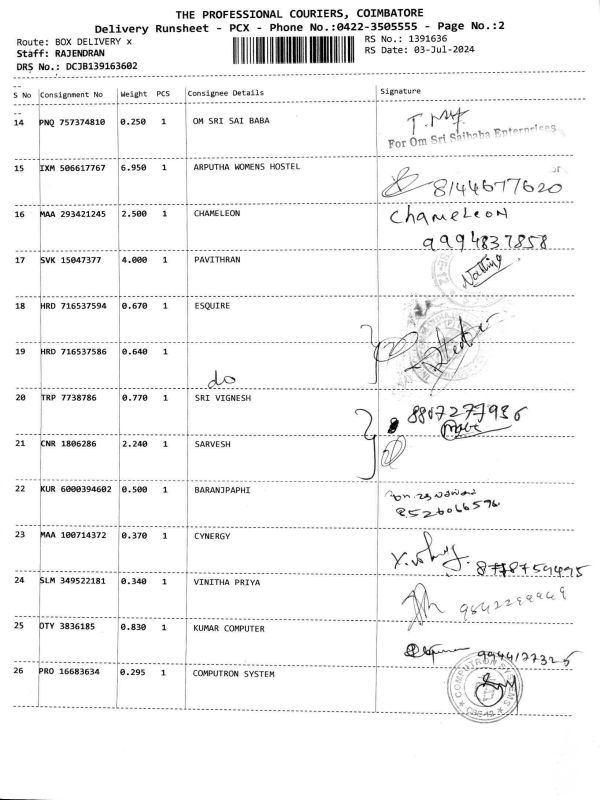 THE PROFESSIONAL COURIERS, COIMBATORE
Delivery Runsheet - PCX - Phone No.:0422-3505555 - Page No.:2
Route: BOX DELIVERY x
RS No.: 1391636
Staff: RAJENDRAN
RS Date: 03-Jul-2024
DRS No.: DCJB139163602
S No Consignment No Weight PCS Consignee Details Signature
14 PNQ 757374810 0.250 1 OM SRI SAI BABA
For Om Sri Saibaba Enterprises
15 IXM 506617767 6.950 1 ARPUTHA WOMENS HOSTEL
8144677620
16 MAA 293421245 2.500 1 CHAMELEON
Chameleon
9994837858
17 SVK 15047377 4.000 1 PAVITHRAN
18 HRD 716537594 0.670 1 ESQUIRE
19 HRD 716537586 0.640 1
do
20 TRP 7738786 0.770 1 SRI VIGNESH
8807277936
21 CNR 1806286 2.240 1 SARVESH
22 KUR 6000394602 0.500 1 BARANJPAPHI
8526066596
23 MAA 100714372 0.370 1 CYNERGY
8778759495
24 SLM 349522181 0.340 1 VINITHA PRIYA
9842299949
25 OTY 3836185 0.830 1 KUMAR COMPUTER
9944177325
26 PRO 16683634 0.295 1 COMPUTRON SYSTEM
COMPUTRON SYSTEMS
CBE-12